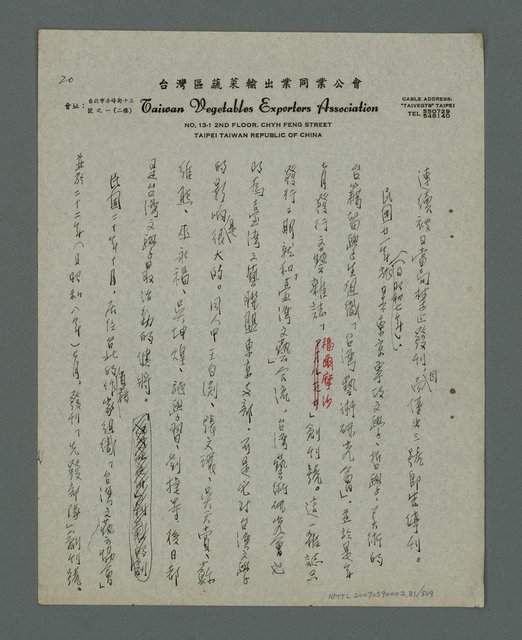 20
台灣區蔬菜輸出業同業公會
會址：台北市赤峰街十三號之一(二樓)
Taiwan Vegetables Exporters Association
CABLE ADDRESS:
"TAIVEGTS" TAIPEI
TEL 550729
548140
NO. 13-1 2ND FLOOR, CHYH FENG STREET
TAIPEI TAIWAN REPUBLIC OF CHINA
連續被日當局禁止發刊，因而僅出三號即告停刊。
民國廿一年(日昭和七年)，旅日東京專攻文學、哲學、美術的
台籍留學生組織「台灣藝術研究會」，並於是年
七月發行文藝雜誌「福爾摩沙」創刊號。這一雜誌只
發行三期就和「臺灣文藝」合流。台灣藝術研究會也
改為臺灣文藝聯盟東京支部，可是它對台灣文學
的影响是很大的。同人中王白渊、張文環、吳天賞、蘇
維熊、巫永福、吳坤煌、施學習、劉捷等後日都
是台灣文學最活動的健將。
民國二十年十月，居住台北的作家組織「台灣文藝協會」
並於二十二年(日昭和八年)七月，發刊「先發部隊」創刊號。
NMTL 20070590002.81/509